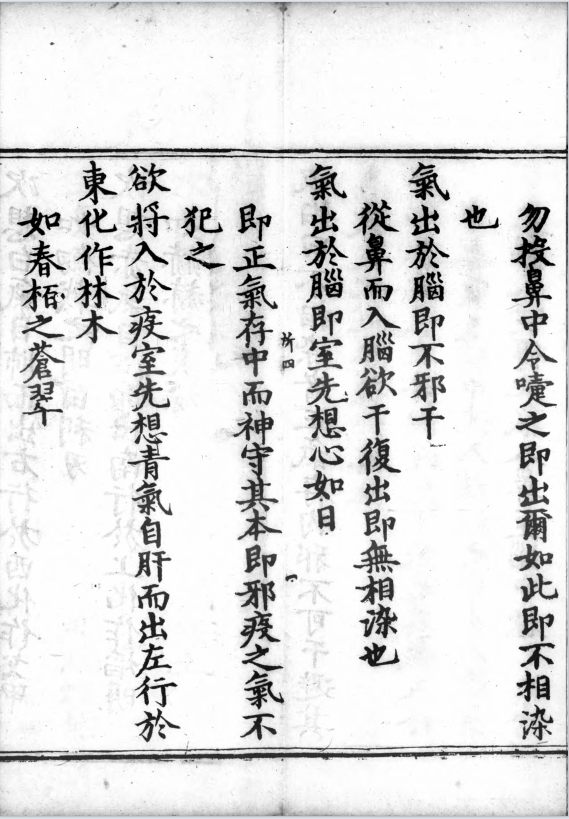 勿投鼻中令嚏之即出爾如此即不相染
也
氣出於腦即不邪干
從鼻而入腦欲干復出即無相染也
氣出於腦即室先想心如日
所四
即正氣存中而神守其本即邪疫之氣不
犯之
欲將入於疫室先想青氣自肝而出左行於
東化作林木
如春栢之蒼翠